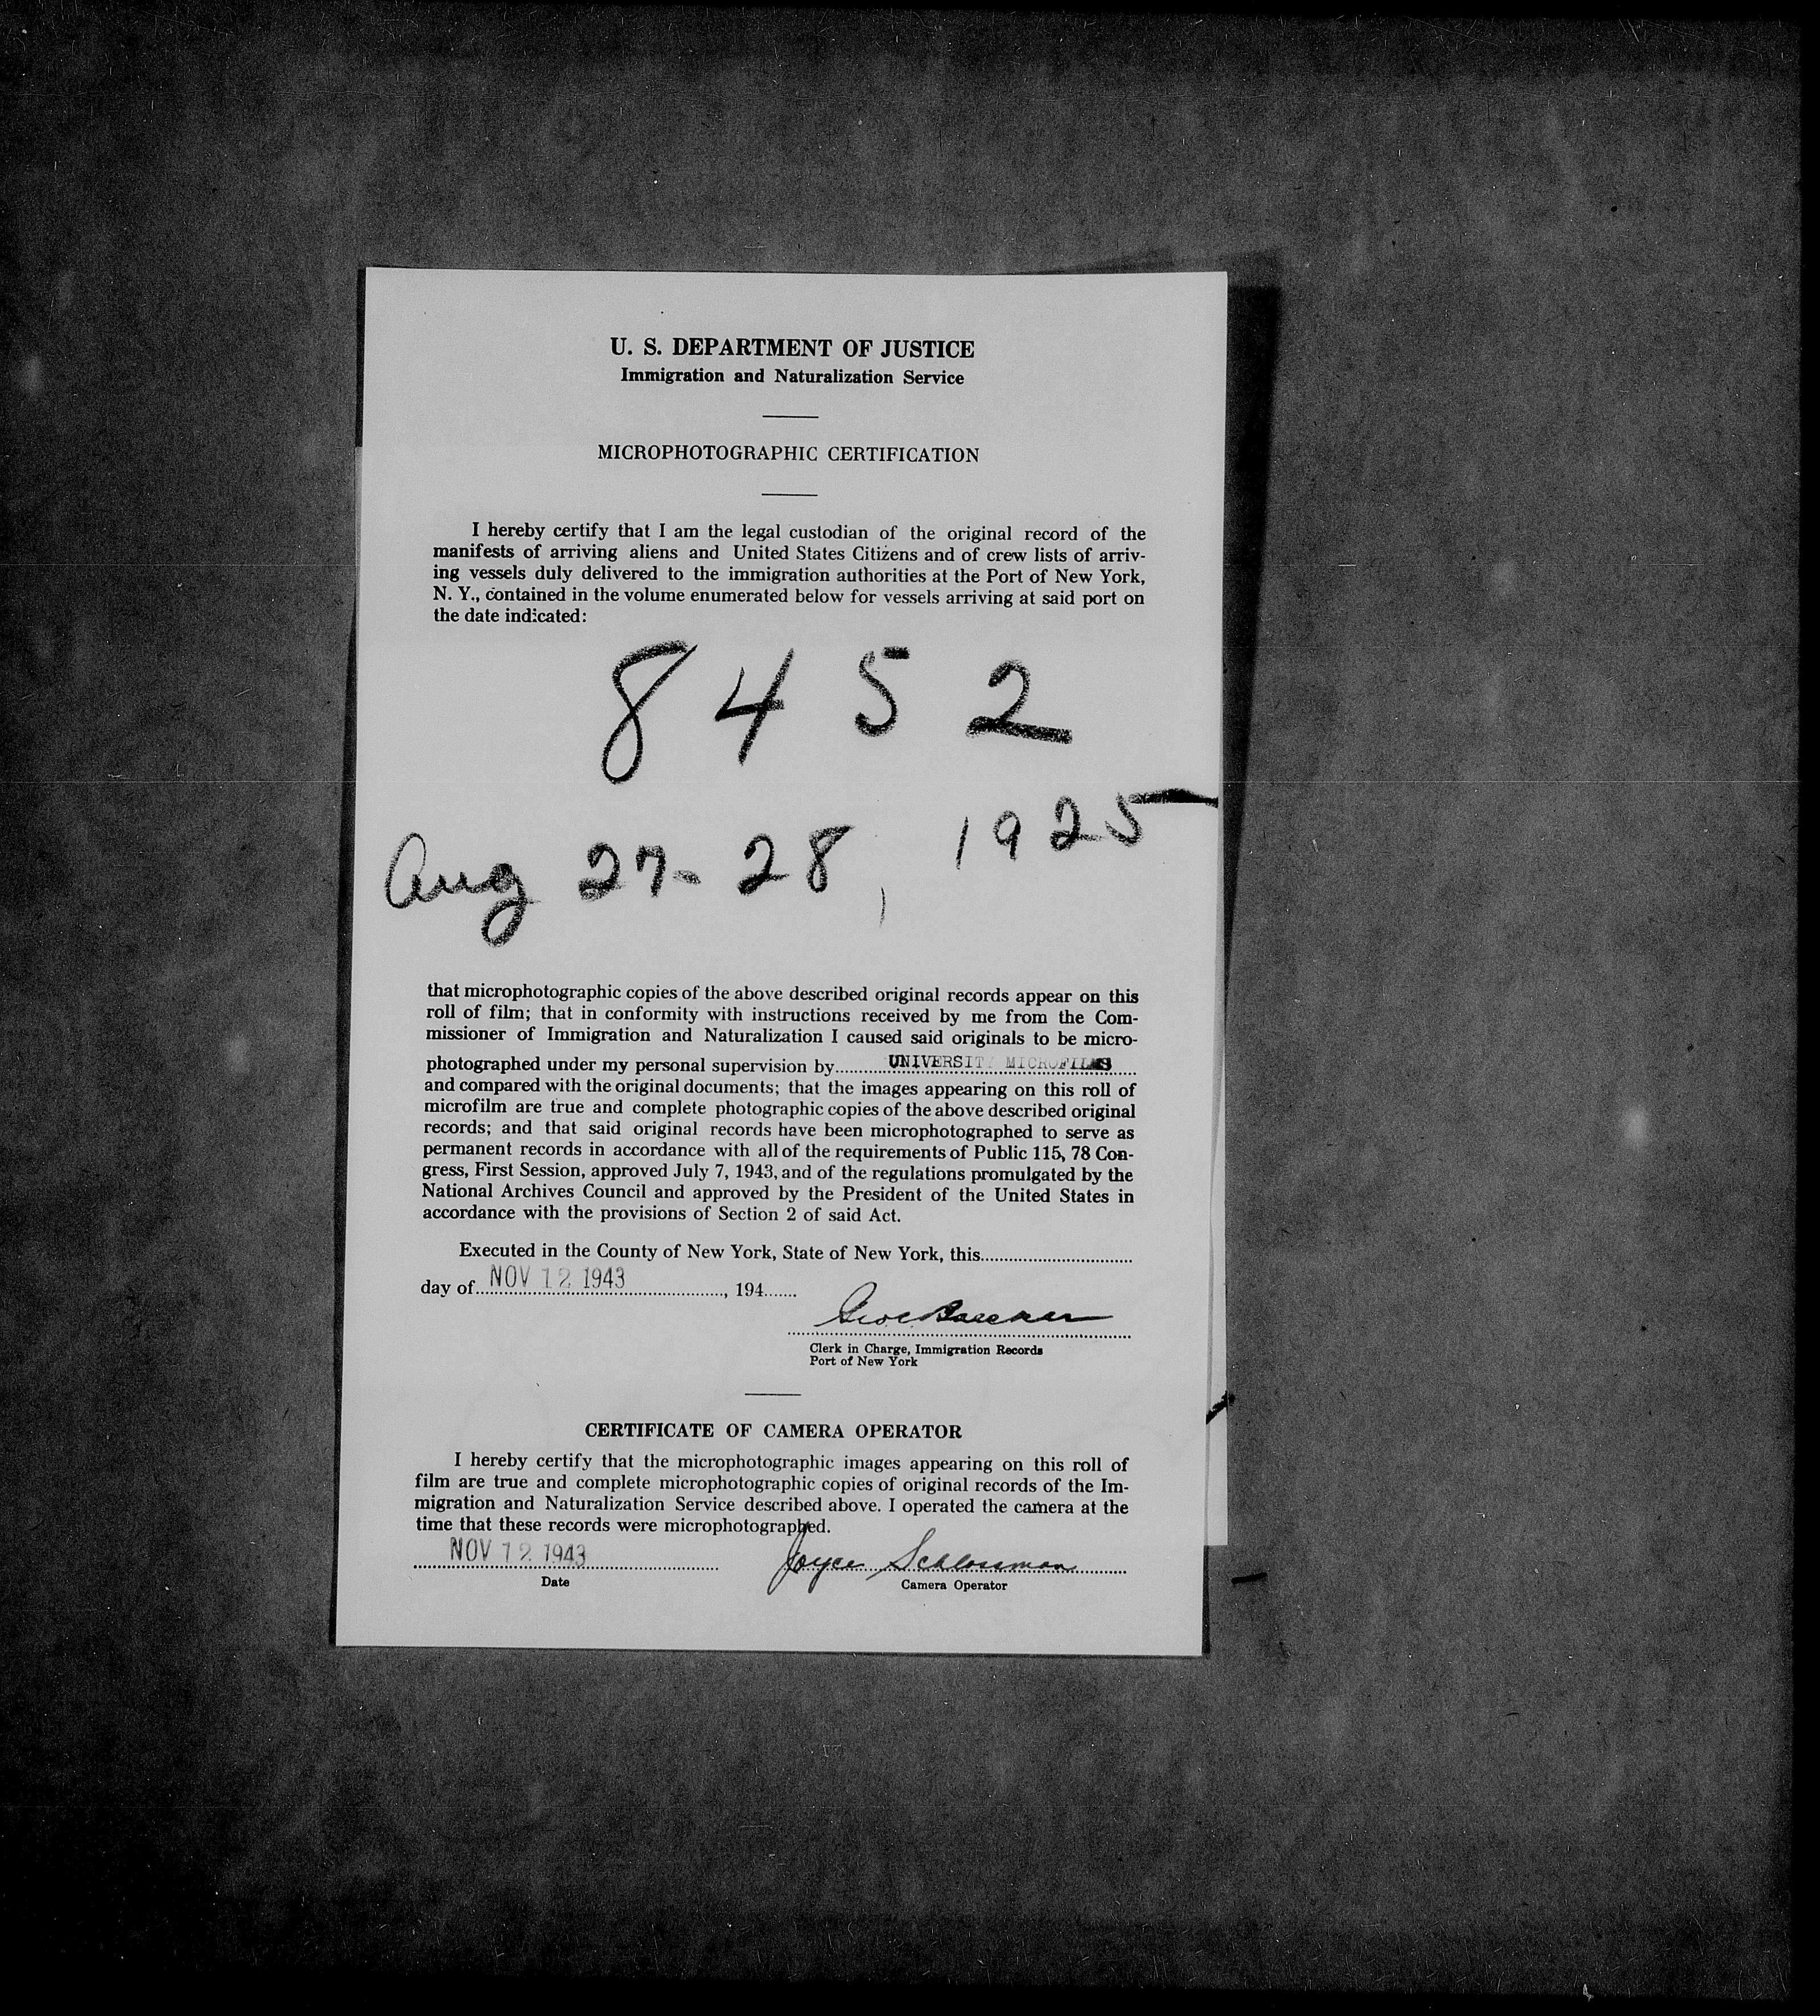 U. S. DEPARTMENT OF JUSTICE
Immigration and Naturalization Service
MICROPHOTOGRAPHIC CERTIFICATION
I hereby certify that I am the legal custodian of the original record of the
manifests of arriving aliens and United States Citizens and of crew lists of arriv-
ing vessels duly delivered to the immigration authorities at the Port of New York,
N. Y., contained in the volume enumerated below for vessels arriving at said port on
the date indicated:
8452
Aug 27-28, 1925
that microphotographic copies of the above described original records appear on this
roll of film; that in conformity with instructions received by me from the Com-
missioner of Immigration and Naturalization I caused said originals to be micro-
photographed under my personal supervision by UNIVERSITY MICROFILMS
and compared with the original documents; that the images appearing on this roll of
microfilm are true and complete photographic copies of the above described original
records; and that said original records have been microphotographed to serve as
permanent records in accordance with all of the requirements of Public 115, 78 Con-
gress, First Session, approved July 7, 1943, and of the regulations promulgated by the
National Archives Council and approved by the President of the United States in
accordance with the provisions of Section 2 of said Act.
Executed in the County of New York, State of New York, this
day of NOV 12 1943, 194
Clerk in Charge, Immigration Records
Port of New York
CERTIFICATE OF CAMERA OPERATOR
I hereby certify that the microphotographic images appearing on this roll of
film are true and complete microphotographic copies of original records of the Im-
migration and Naturalization Service described above. I operated the camera at the
time that these records were microphotographed.
NOV 12 1943 Joyce Schlossman
Date Camera Operator